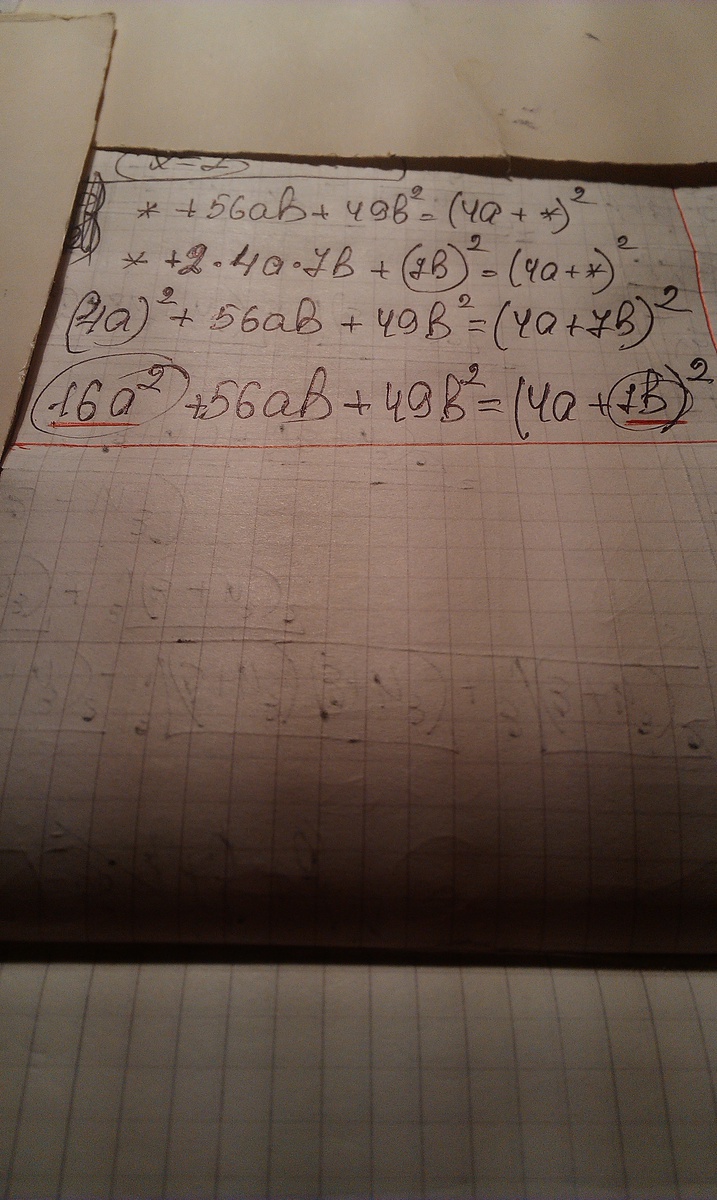 * + 56ab + 49b² = (4a + *)²
* + 2 · 4a · 7b + (7b)² = (4a + *)²
(4a)² + 56ab + 49b² = (4a + 7b)²
16a² + 56ab + 49b² = (4a + 7b)²